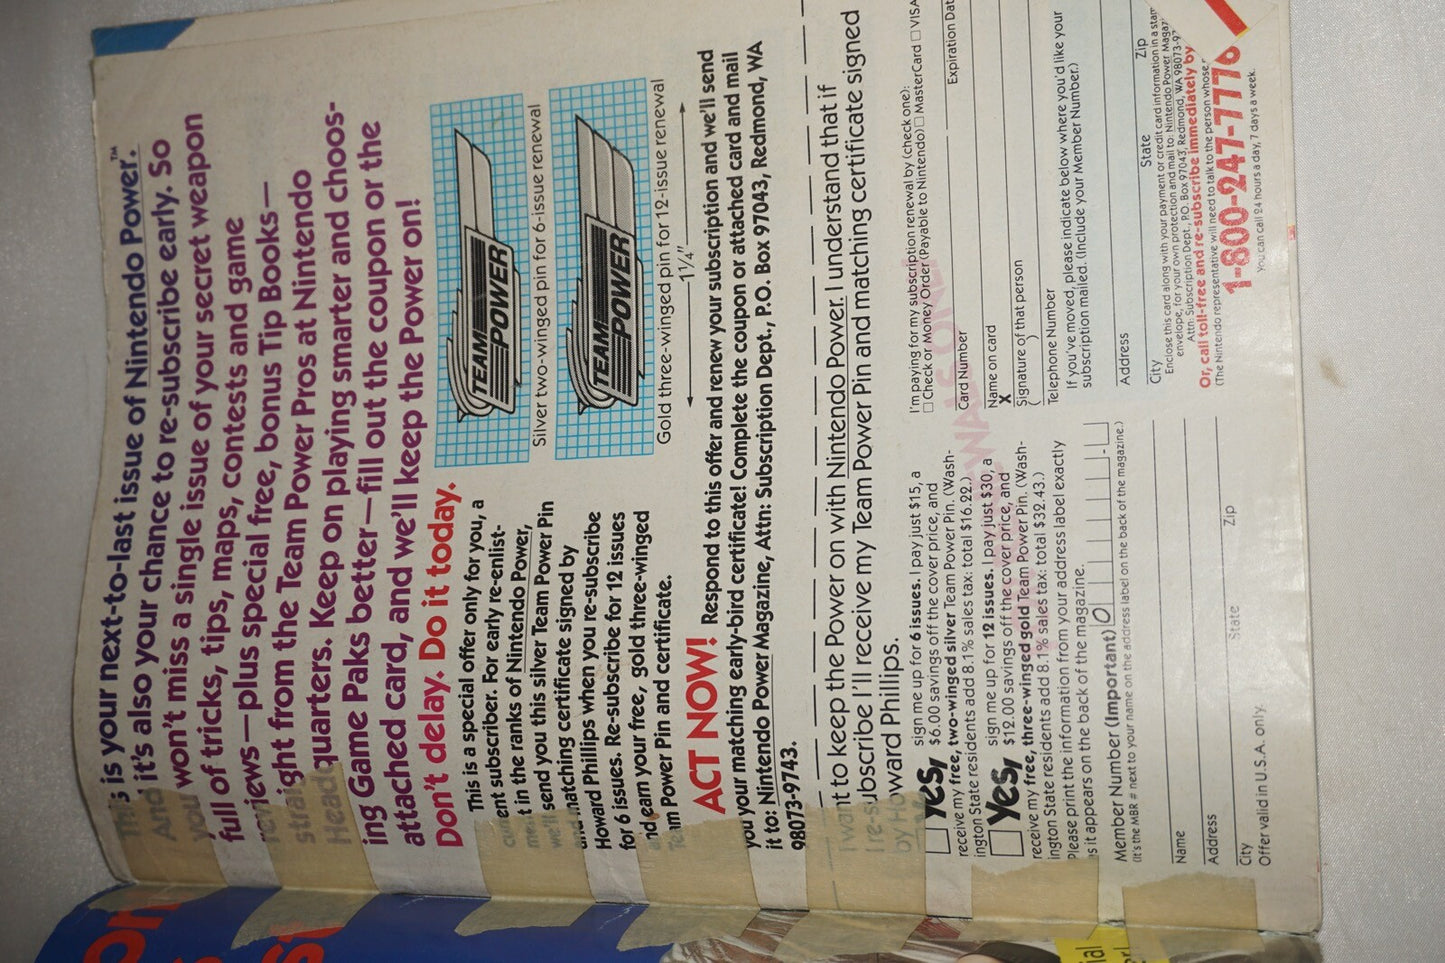 This is your next-to-last issue of Nintendo Power.™
And it's also your chance to re-subscribe early. So
you won't miss a single issue of your secret weapon
full of tricks, tips, maps, contests and game
reviews—plus special free, bonus Tip Books—
straight from the Team Power Pros at Nintendo
Headquarters. Keep on playing smarter and choos-
ing Game Paks better—fill out the coupon or the
attached card, and we'll keep the Power on!
Don't delay. Do it today.
This is a special offer only for you, a
current subscriber. For early re-enlist-
ment in the ranks of Nintendo Power,
we'll send you this silver Team Power Pin
and matching certificate signed by
Howard Phillips when you re-subscribe
for 6 issues. Re-subscribe for 12 issues
and earn your free, gold three-winged
Team Power Pin and certificate.
TEAM
POWER
Silver two-winged pin for 6-issue renewal
TEAM
POWER
Gold three-winged pin for 12-issue renewal
1¼"
ACT NOW! Respond to this offer and renew your subscription and we'll send
you your matching early-bird certificate! Complete the coupon or attached card and mail
it to: Nintendo Power Magazine, Attn: Subscription Dept., P.O. Box 97043, Redmond, WA
98073-9743.
I want to keep the Power on with Nintendo Power. I understand that if
I re-subscribe I'll receive my Team Power Pin and matching certificate signed
by Howard Phillips.
Yes, sign me up for 6 issues. I pay just $15, a
$6.00 savings off the cover price, and
receive my free, two-winged silver Team Power Pin. (Wash-
ington State residents add 8.1% sales tax: total $16.22.)
Yes, sign me up for 12 issues. I pay just $30, a
$12.00 savings off the cover price, and
receive my free, three-winged gold Team Power Pin. (Wash-
ington State residents add 8.1% sales tax: total $32.43.)
Please print the information from your address label exactly
as it appears on the back of the magazine.
Member Number (Important) 0
(It's the MBR # next to your name on the address label on the back of the magazine.)
Name
Address
City State Zip
Offer valid in U.S.A. only.
I'm paying for my subscription renewal by (check one):
Check or Money Order (Payable to Nintendo) MasterCard VISA
Card Number Expiration Dat
Name on card
X
Signature of that person
( )
Telephone Number
If you've moved, please indicate below where you'd like your
subscription mailed. (Include your Member Number.)
Address
City State Zip
Enclose this card along with your payment or credit card information in a stam
envelope, for your own protection and mail to: Nintendo Power Magaz
Attn: Subscription Dept., P.O. Box 97043, Redmond, WA 98073-97
Or, call toll-free and re-subscribe immediately by
(The Nintendo representative will need to talk to the person whose
1-800-247-7776
You can call 24 hours a day, 7 days a week.